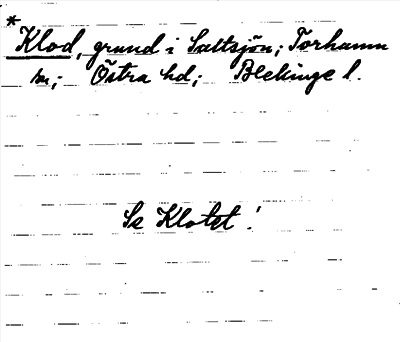 *
Klod, grund i Saltsjön; Torhamn
sn; Östra hd; Blekinge l.
Se Klotet!